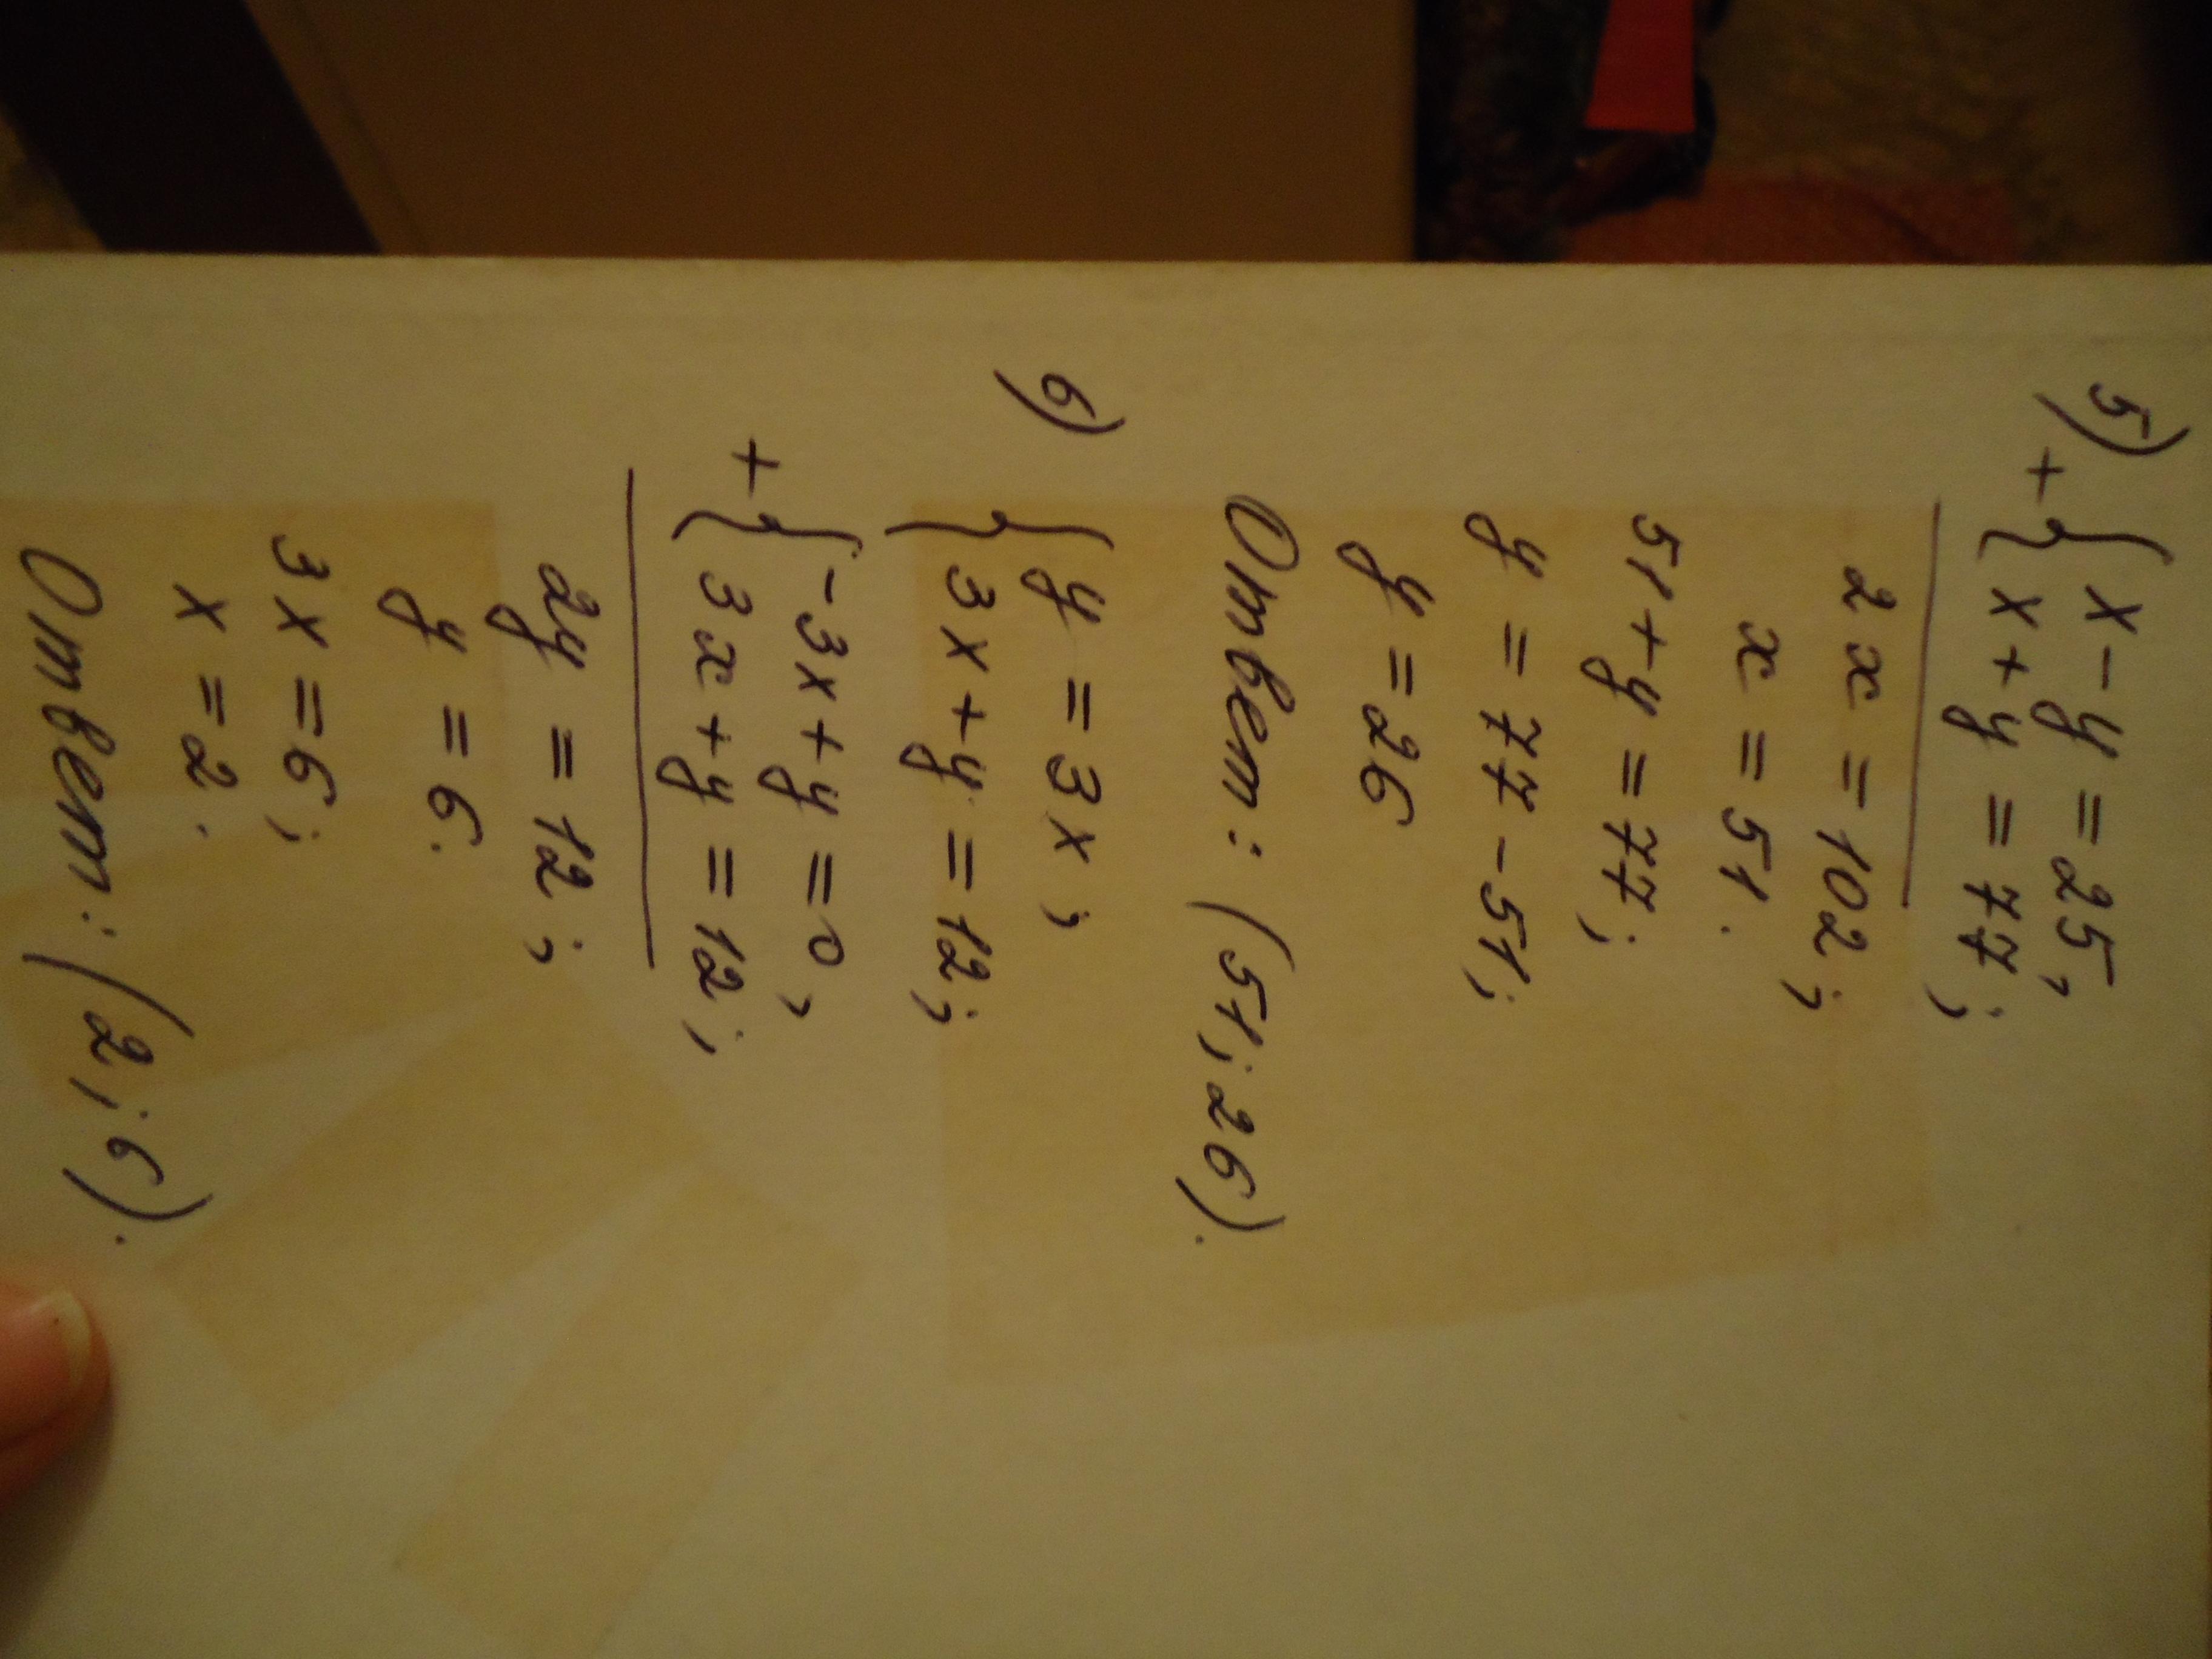 5)
+ { x - y = 25,
x + y = 77;
2x = 102;
x = 51.
51 + y = 77;
y = 77 - 51;
y = 26
Ответ: (51; 26).
6) { y = 3x;
3x + y = 12;
+ { -3x + y = 0,
3x + y = 12;
2y = 12;
y = 6.
3x = 6;
x = 2.
Ответ: (2; 6).